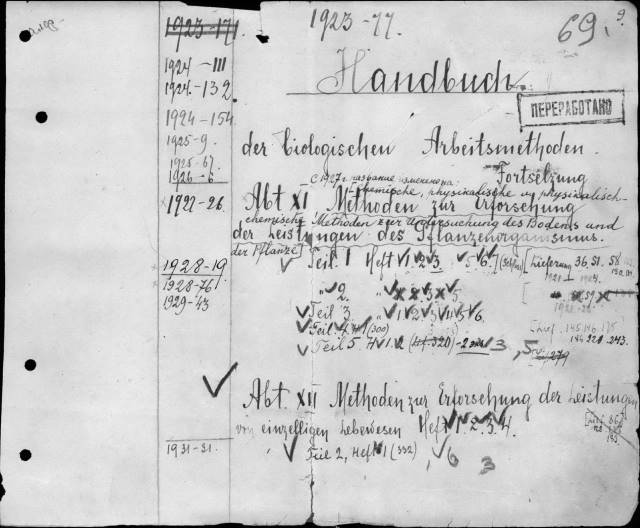 1923-77.
69.
9.
1923-171
1924-III
1924-132
1924-154
1925-9.
1925-67
1926-6
1927-26.
1928-19
1928-76
1929-43
1931-31.
Handbuch.
ПЕРЕРАБОТАНО
der biologischen Arbeitsmethoden.
Fortsetzung
с 1927 г. название изменена:
Chemische, physikalische u. physikalisch-
Abt XI Methoden zur Erforschung
chemische Methoden zur Untersuchung des Bodens und
der Leistungen des Pflanzenorganismus.
der Pflanze
Teil 1 Heft 1 2 3 5 6 7 (Schluss) [Lieferung 36, 51, 58
" 2. " 5
Teil 3 " 1 2 3 4 5 6
Teil 4 H 1 (300) [Lief. 145. 146. 175
Teil 5 H 1 2 (Hf 320) 3, 5 144 221 243.
279
Abt. XII Methoden zur Erforschung der Leistungen
von einzelligen Lebewesen Heft 1. 2. 3. 4.
Teil 2, Heft 1 (332), 6
3